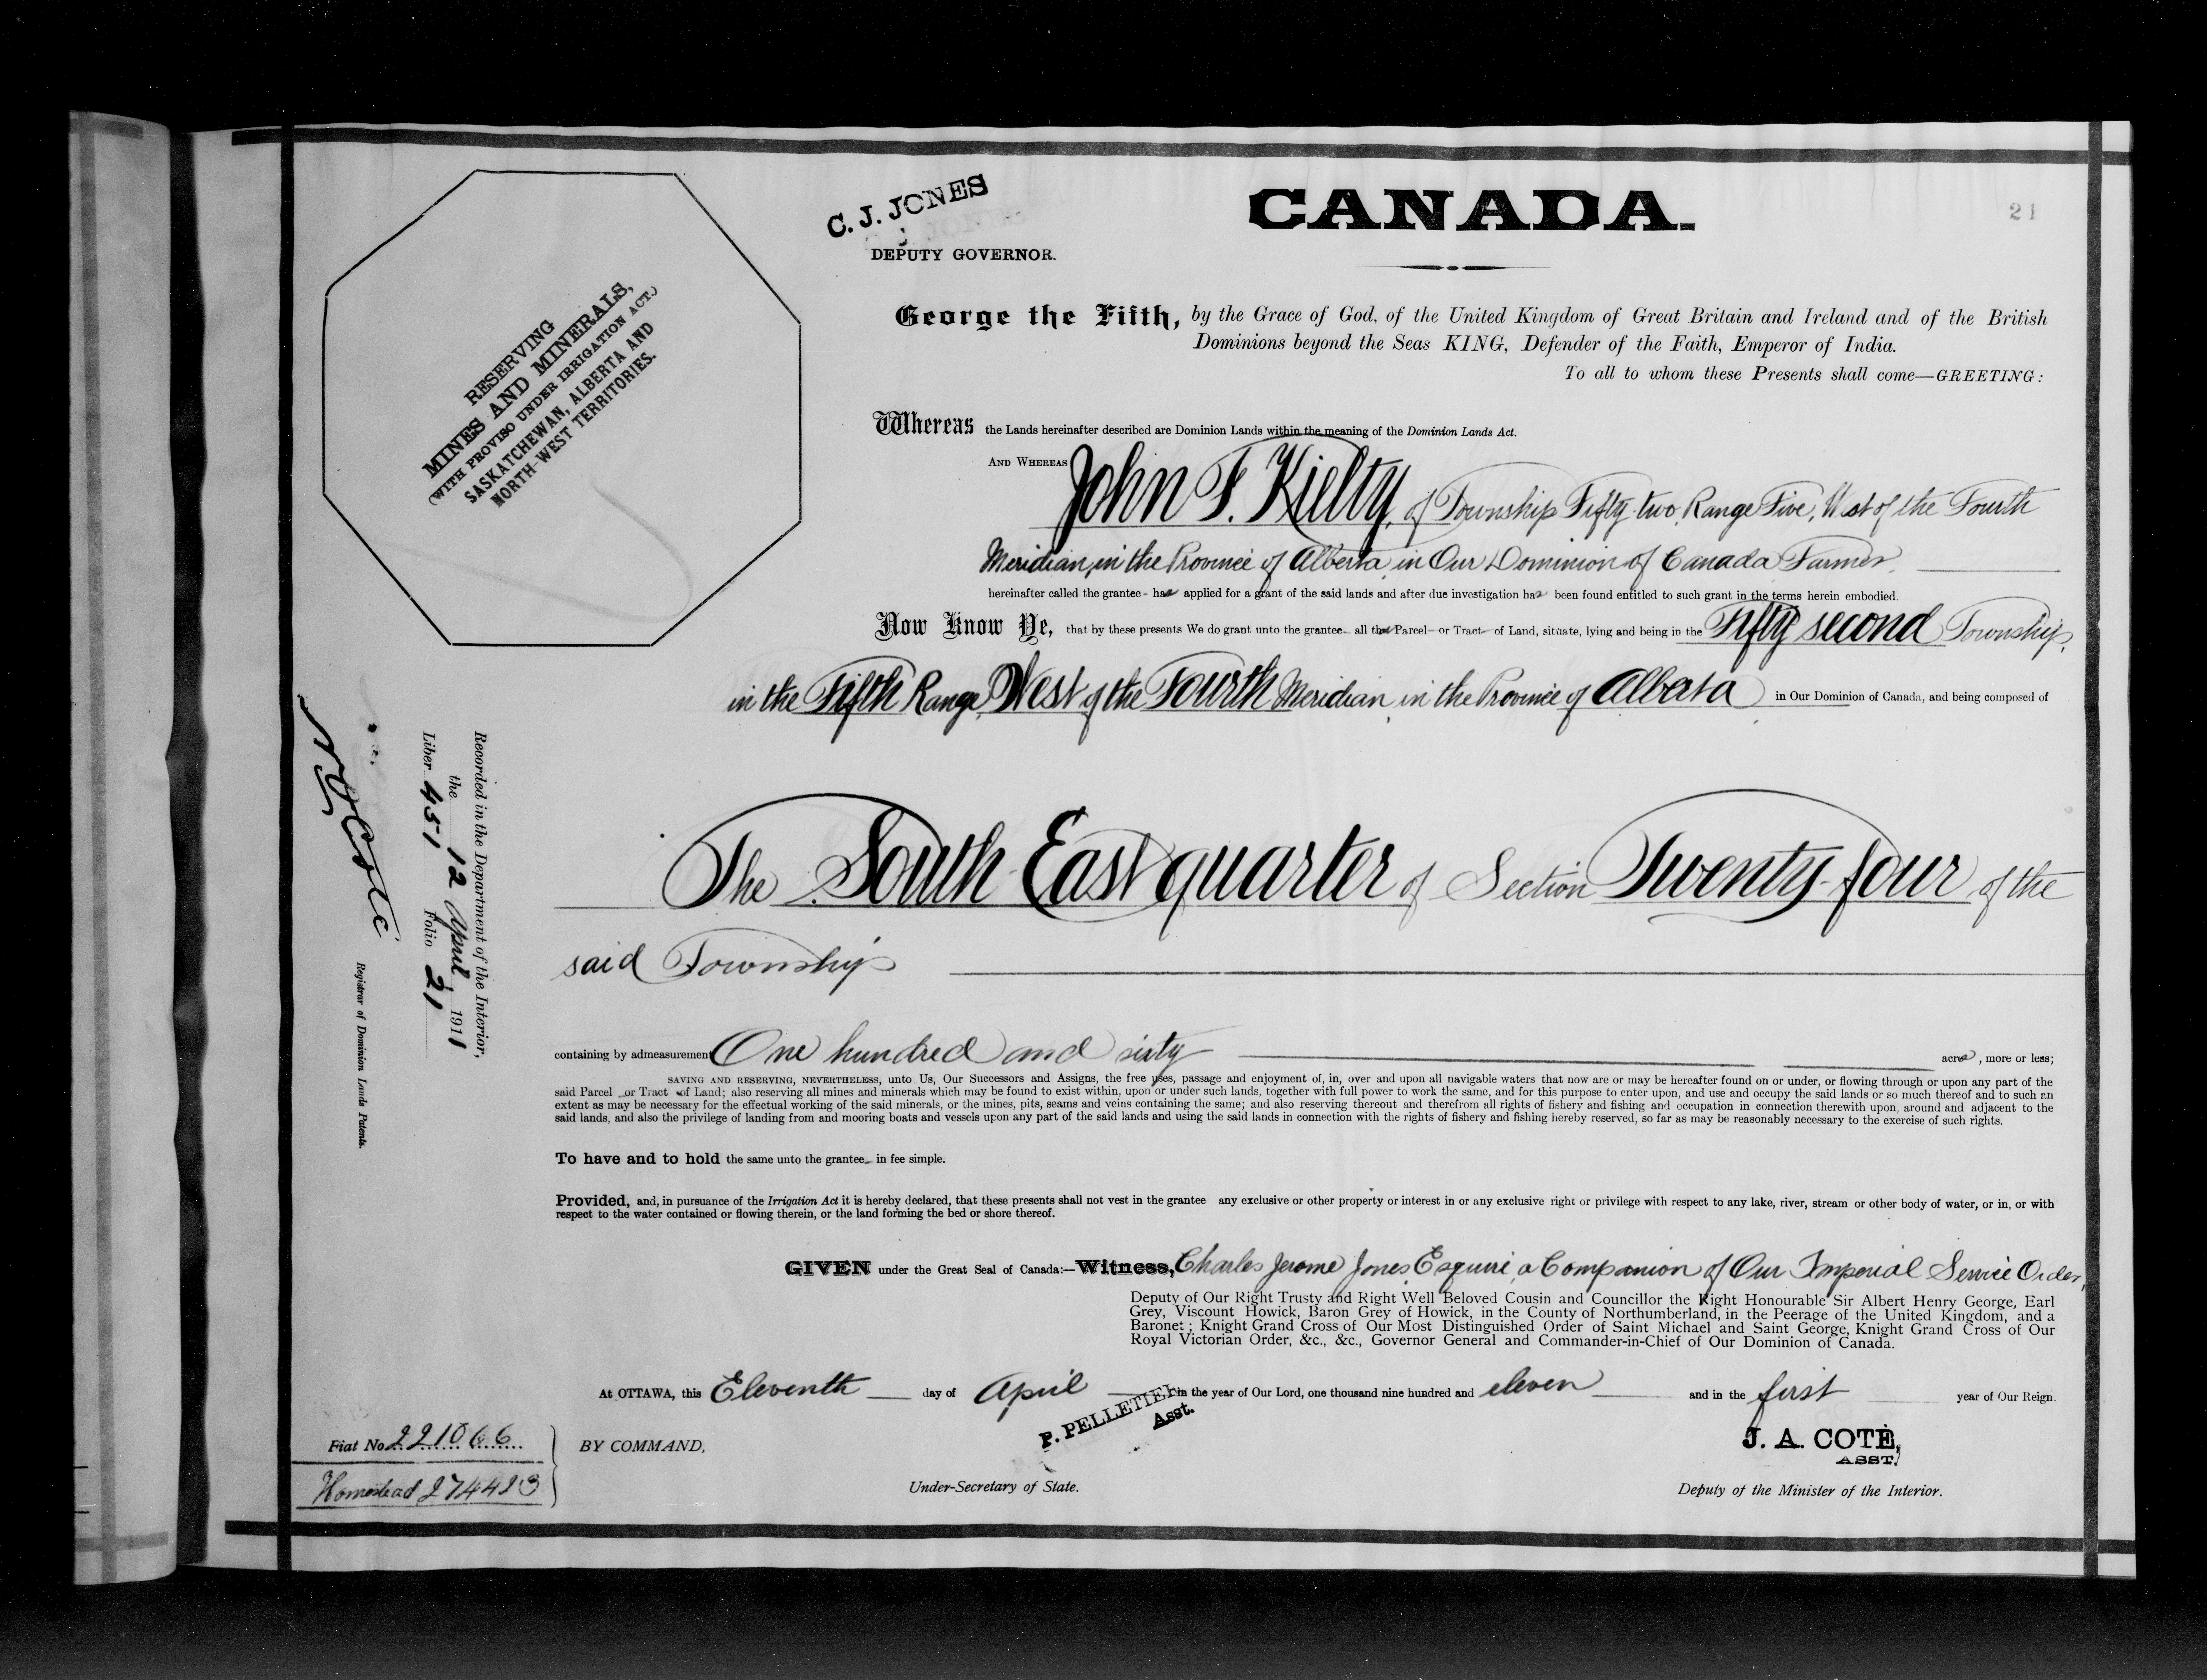 CANADA.
21
C. J. JONES
DEPUTY GOVERNOR.
RESERVING
MINES AND MINERALS,
(WITH PROVISO UNDER IRRIGATION ACT.)
SASKATCHEWAN, ALBERTA AND
NORTH-WEST TERRITORIES.
George the Fifth, by the Grace of God, of the United Kingdom of Great Britain and Ireland and of the British
Dominions beyond the Seas KING, Defender of the Faith, Emperor of India.
To all to whom these Presents shall come—GREETING:
Whereas the Lands hereinafter described are Dominion Lands within the meaning of the Dominion Lands Act.
AND WHEREAS John F. Kielty, of Township Fifty-two, Range Five, West of the Fourth
Meridian, in the Province of Alberta, in Our Dominion of Canada, Farmer,
hereinafter called the grantee- has applied for a grant of the said lands and after due investigation has been found entitled to such grant in the terms herein embodied.
Now Know Ye, that by these presents We do grant unto the grantee all that Parcel- or Tract- of Land, situate, lying and being in the Fifty second Township,
in the Fifth Range, West of the Fourth Meridian, in the Province of Alberta in Our Dominion of Canada, and being composed of
The South East quarter of Section Twenty-four of the
said Township
containing by admeasurement One hundred and sixty acres, more or less;
SAVING AND RESERVING, NEVERTHELESS, unto Us, Our Successors and Assigns, the free uses, passage and enjoyment of, in, over and upon all navigable waters that now are or may be hereafter found on or under, or flowing through or upon any part of the
said Parcel or Tract of Land; also reserving all mines and minerals which may be found to exist within, upon or under such lands, together with full power to work the same, and for this purpose to enter upon, and use and occupy the said lands or so much thereof and to such an
extent as may be necessary for the effectual working of the said minerals, or the mines, pits, seams and veins containing the same; and also reserving thereout and therefrom all rights of fishery and fishing and occupation in connection therewith upon, around and adjacent to the
said lands, and also the privilege of landing from and mooring boats and vessels upon any part of the said lands and using the said lands in connection with the rights of fishery and fishing hereby reserved, so far as may be reasonably necessary to the exercise of such rights.
To have and to hold the same unto the grantee in fee simple.
Provided, and, in pursuance of the Irrigation Act it is hereby declared, that these presents shall not vest in the grantee any exclusive or other property or interest in or any exclusive right or privilege with respect to any lake, river, stream or other body of water, or in, or with
respect to the water contained or flowing therein, or the land forming the bed or shore thereof.
GIVEN under the Great Seal of Canada:—Witness, Charles Jerome Jones, Esquire, a Companion of Our Imperial Service Order,
Deputy of Our Right Trusty and Right Well Beloved Cousin and Councillor the Right Honourable Sir Albert Henry George, Earl
Grey, Viscount Howick, Baron Grey of Howick, in the County of Northumberland, in the Peerage of the United Kingdom, and a
Baronet; Knight Grand Cross of Our Most Distinguished Order of Saint Michael and Saint George, Knight Grand Cross of Our
Royal Victorian Order, &c., &c., Governor General and Commander-in-Chief of Our Dominion of Canada.
At OTTAWA, this Eleventh day of April in the year of Our Lord, one thousand nine hundred and eleven and in the first year of Our Reign.
BY COMMAND,
P. PELLETIER
Asst.
Under-Secretary of State.
J. A. COTÉ,
ASST.
Deputy of the Minister of the Interior.
Fiat No. 221066
Homestead 274423
Recorded in the Department of the Interior,
the 12 April, 1911
Liber 451 Folio 21
N O Coté
Registrar of Dominion Lands Patents.